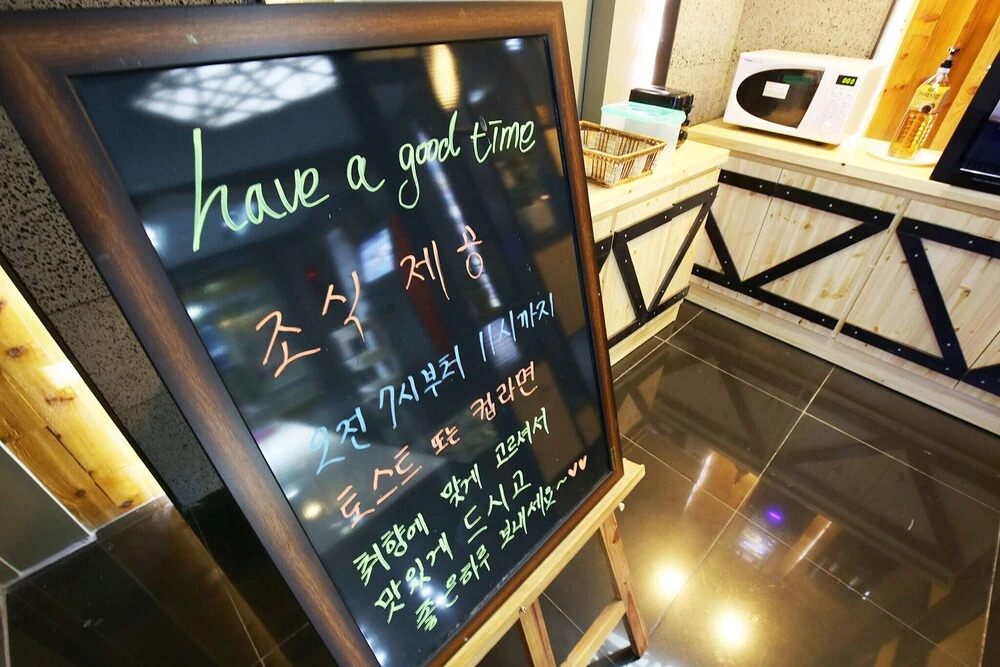 have a good time
조식 제공
오전 7시부터 11시까지
토스트 또는 컵라면
취향에 맞게 고르셔서
맛있게 드시고
좋은하루 보내세요~